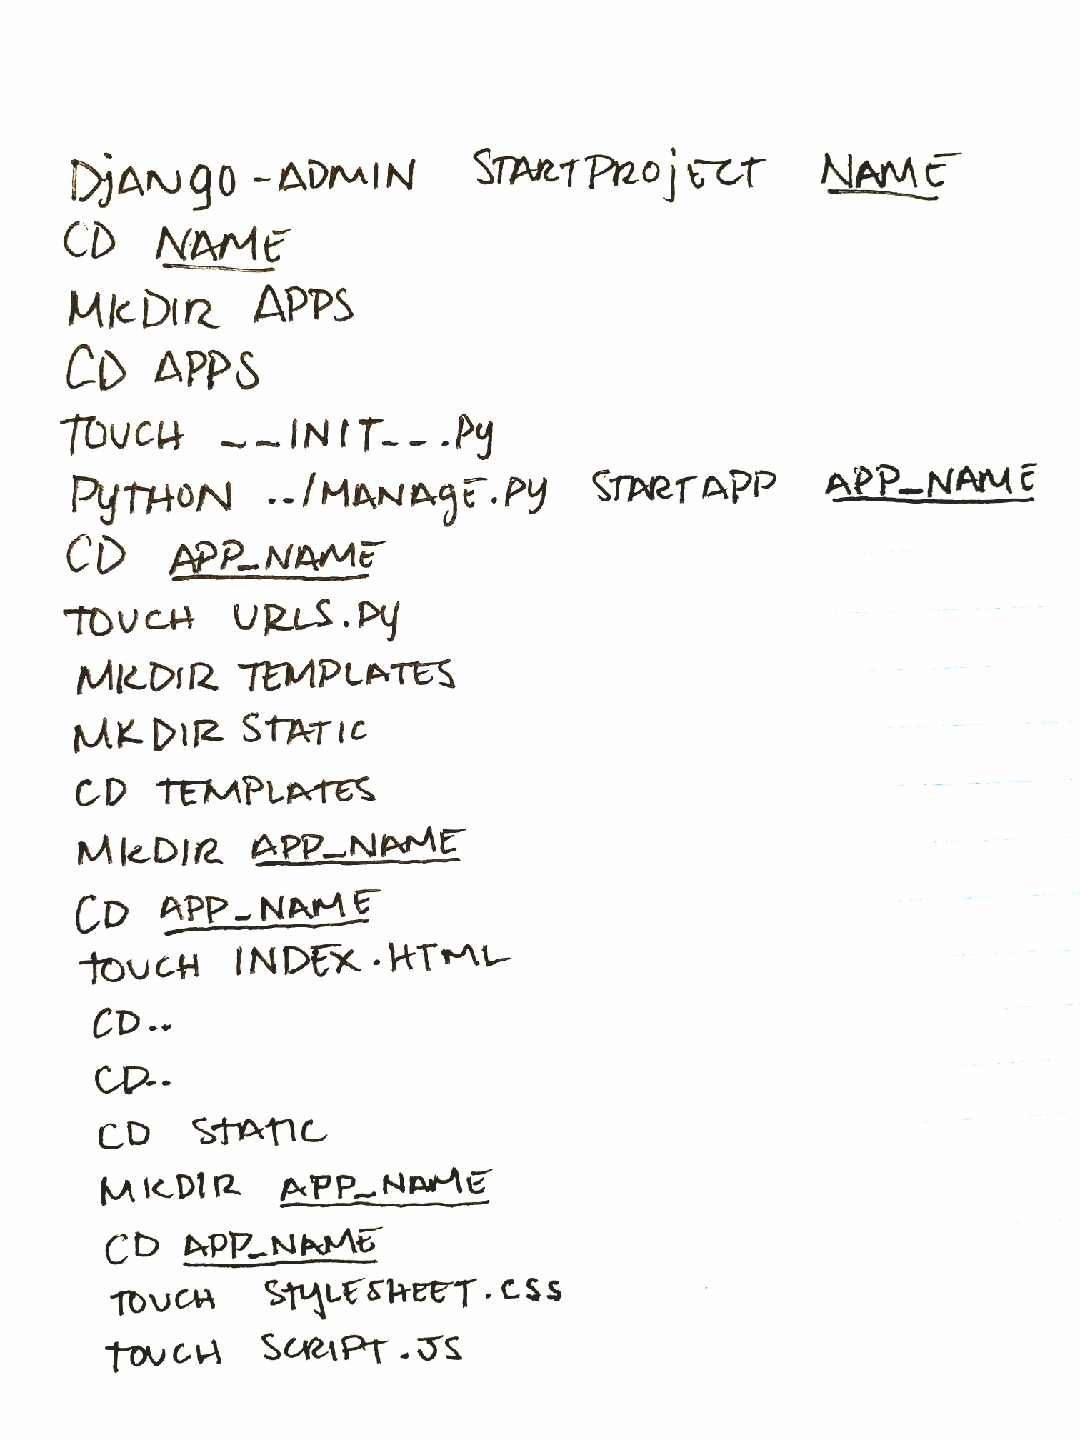 DjANgO-ADMIN STARTPROjECT NAME
CD NAME
MkDIR APPS
CD APPS
TOUCH __INIT__.Py
PyTHON ../MANAgE.Py STARTAPP APP_NAME
CD APP_NAME
TOUCH URLS.Py
MKDIR TEMPLATES
MKDIR STATIC
CD TEMPLATES
MkDIR APP_NAME
CD APP_NAME
TOUCH INDEX.HTML
CD..
CD..
CD STATIC
MKDIR APP_NAME
CD APP_NAME
TOUCH STYLESHEET.CSS
TOUCH SCRIPT.JS